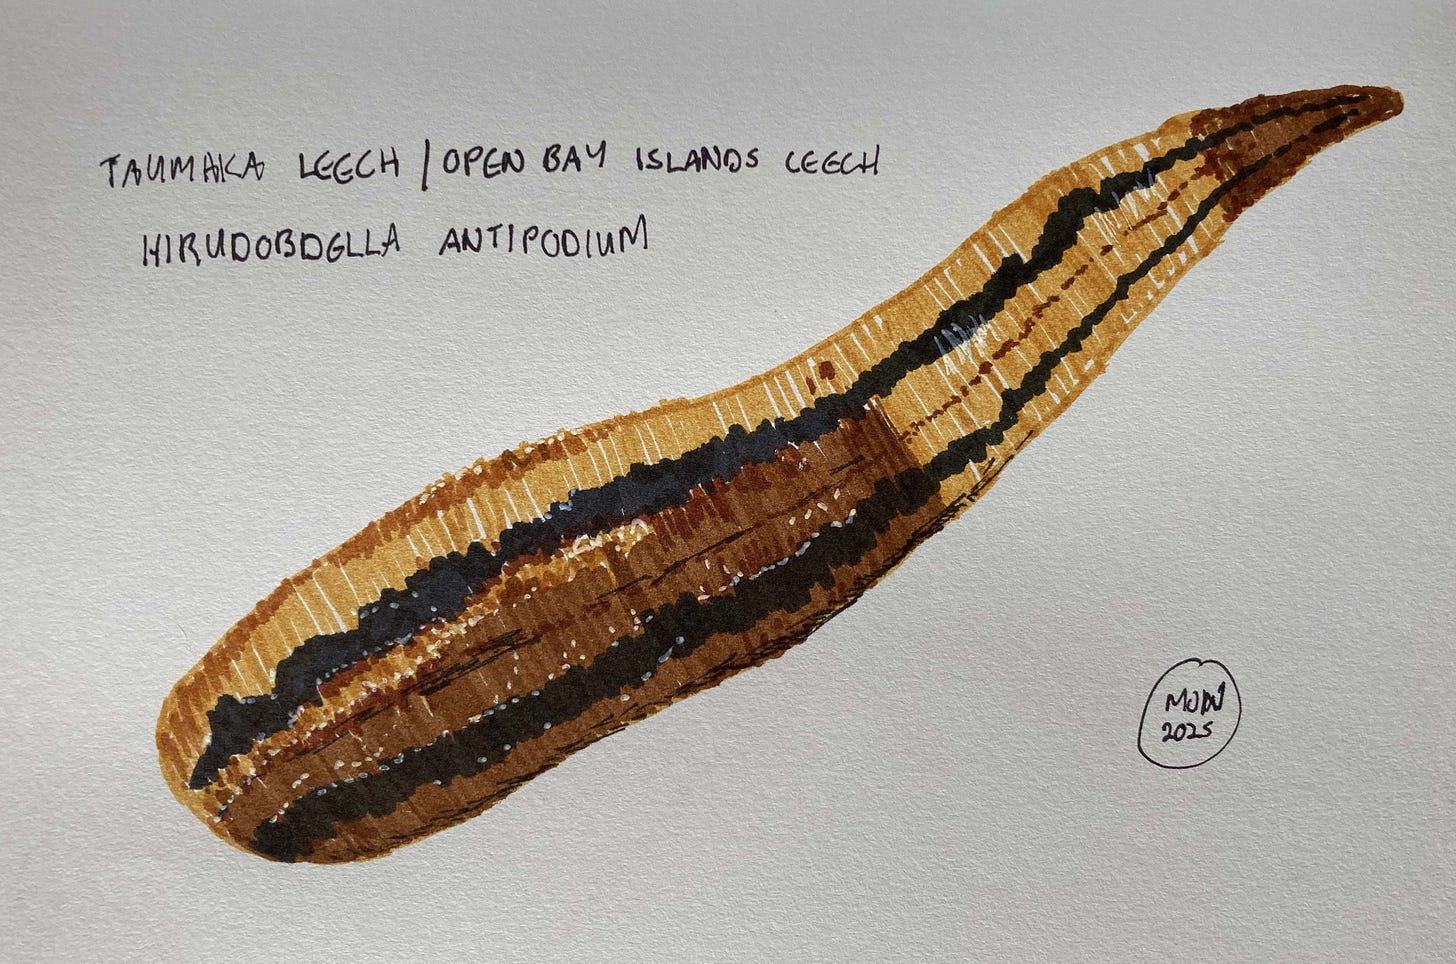 TAUMAKA LEECH / OPEN BAY ISLANDS LEECH
HIRUDOBDELLA ANTIPODIUM
2025